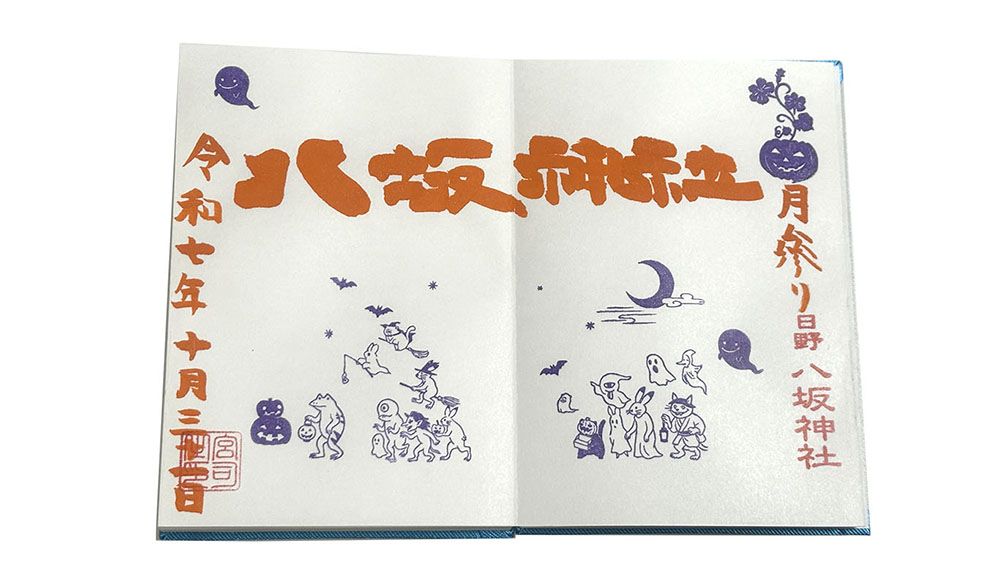 月参り
日野
八坂神社
八坂神社
令和七年十月三十一日
宮司